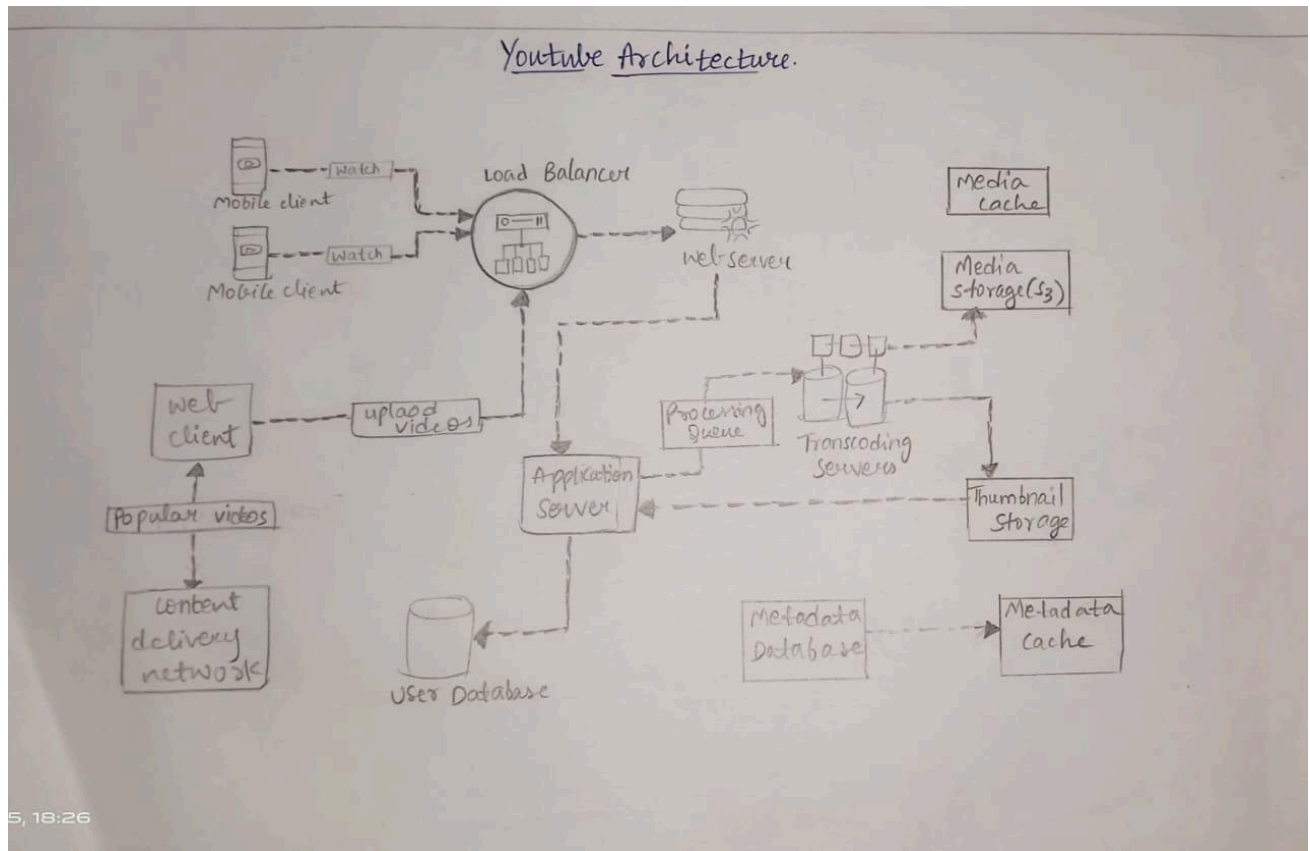 Youtube Architecture.
Watch
Mobile client
Watch
Mobile client
Load Balancer
Web server
Media
cache
Media
storage(S3)
Web
client
uplaod
videos
Processing
Queue
Transcoding
Servers
Application
Server
Thumbnail
storage
Popular videos
Content
delivery
network
User Database
Metadata
Database
Metadata
Cache
5, 18:26